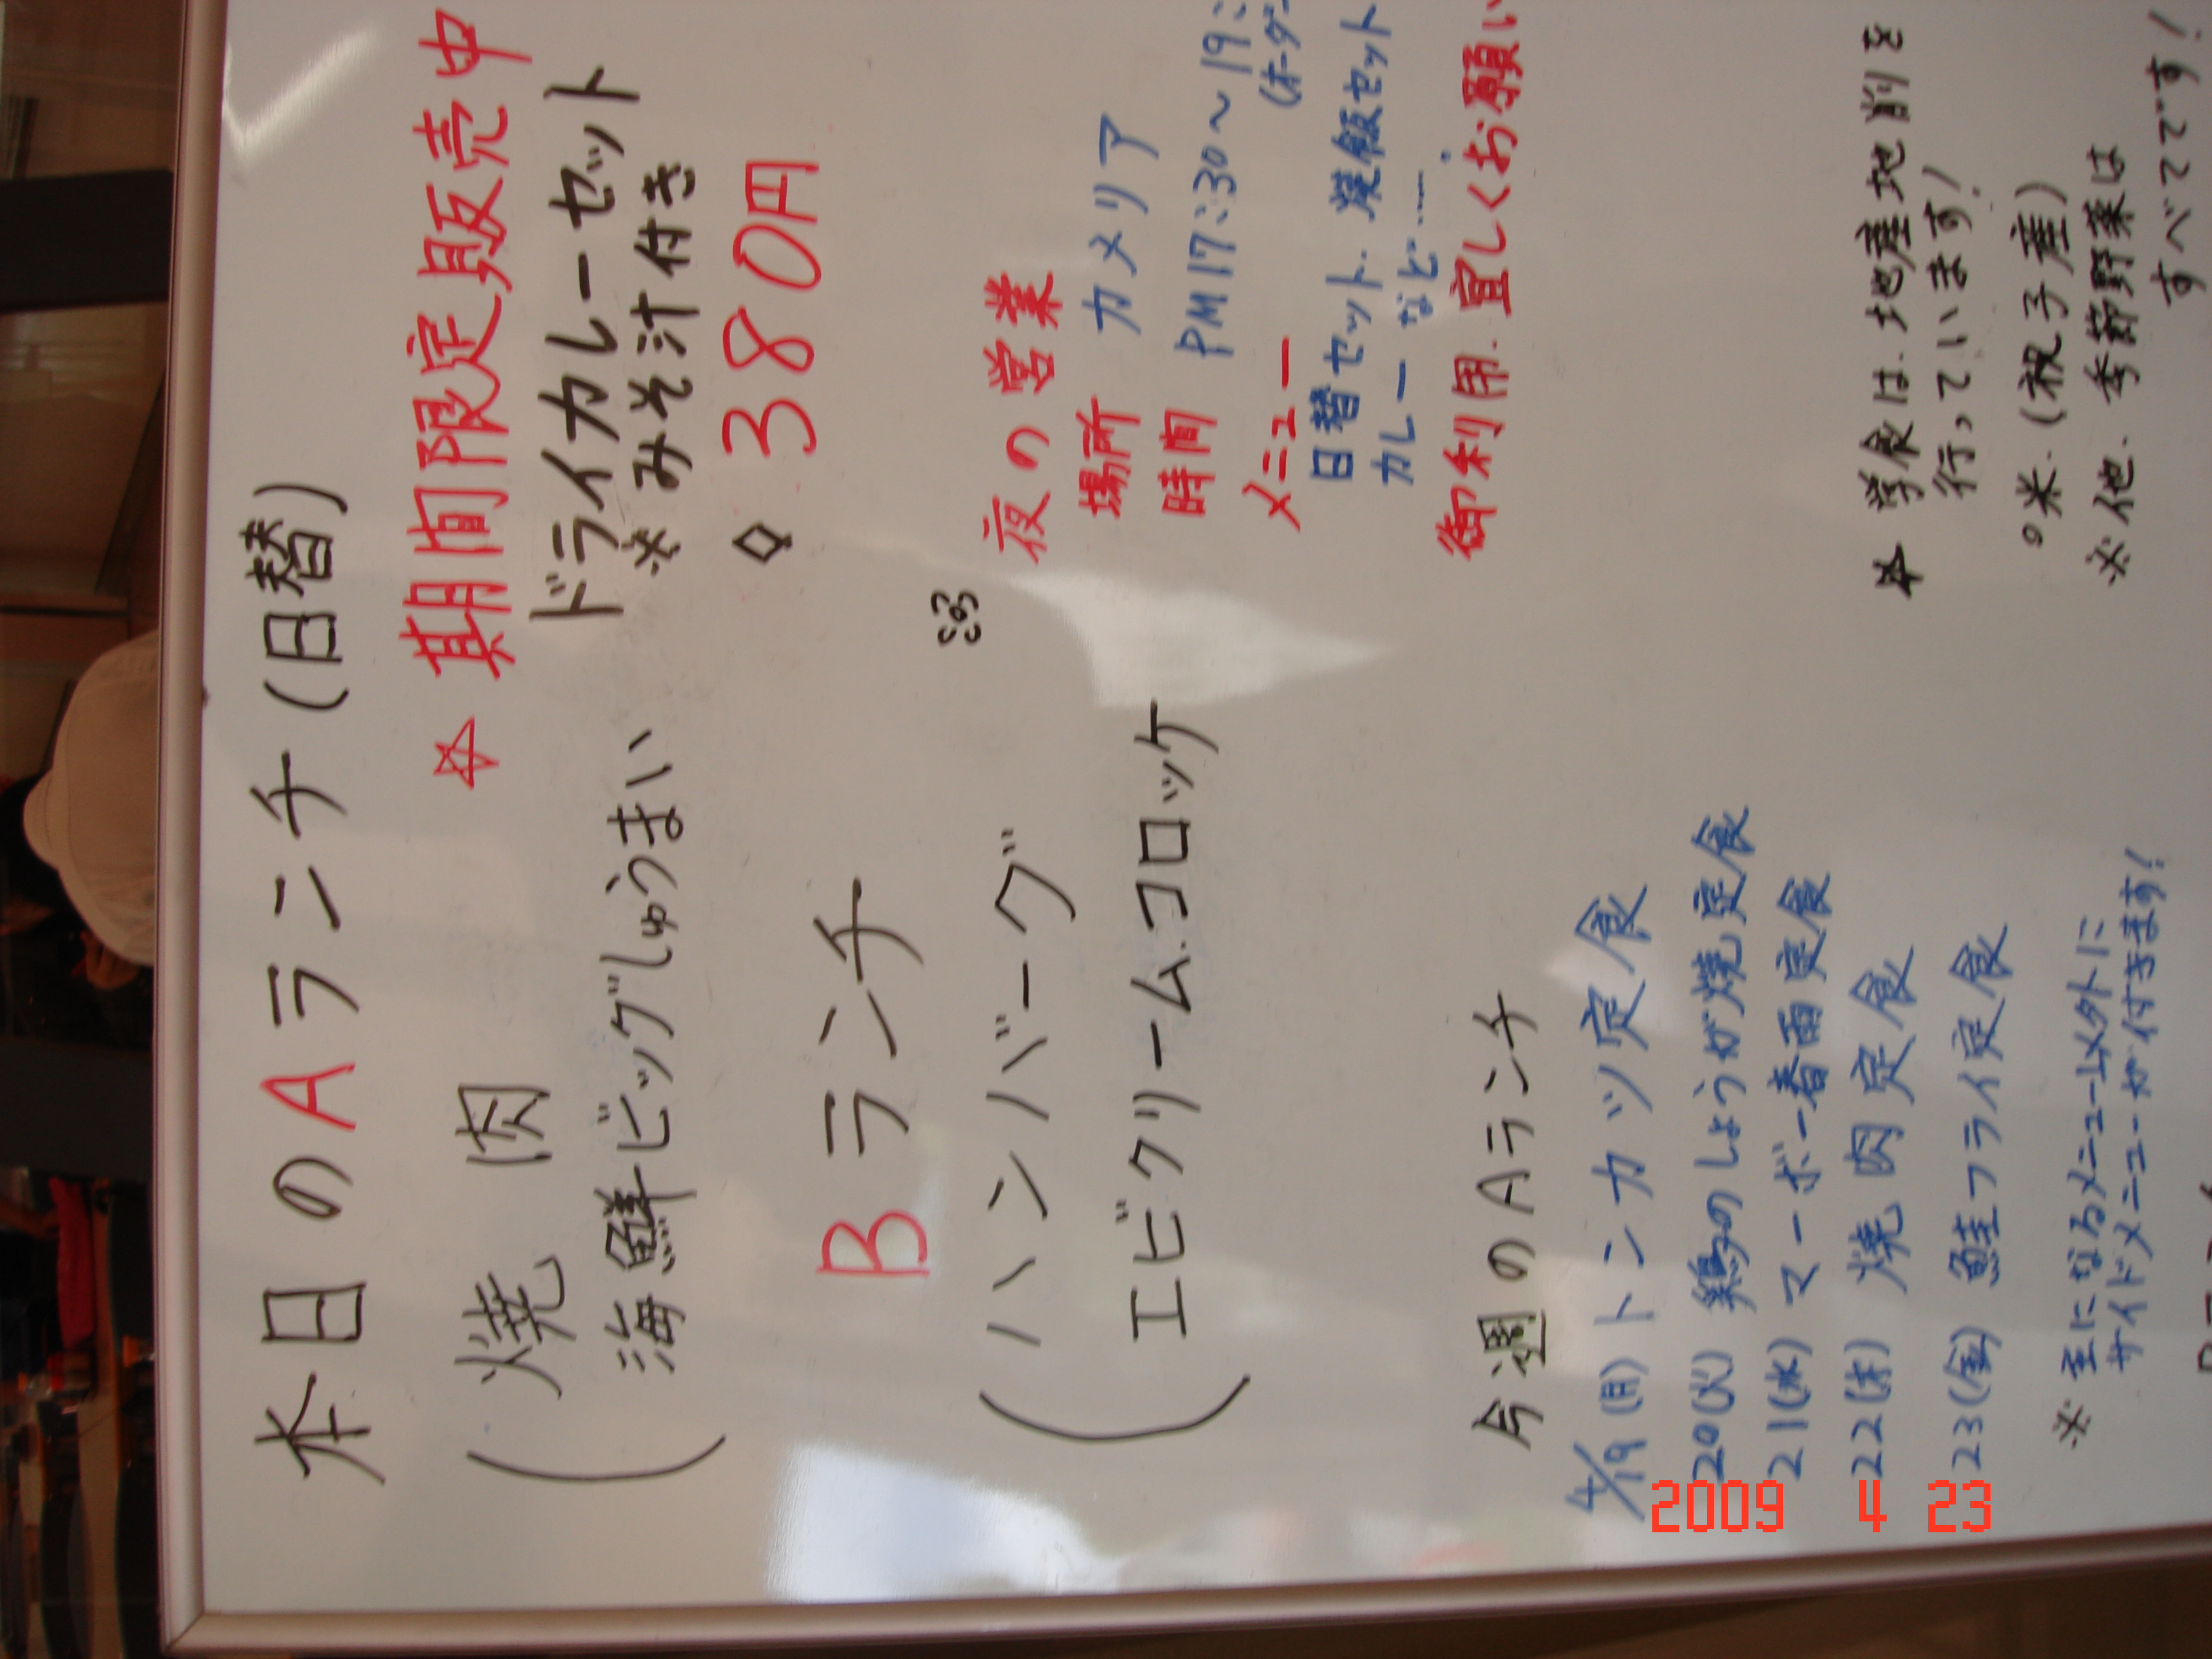 本日のAランチ(日替)
焼肉
海鮮ビッグしゅうまい
Bランチ
ハンバーグ
エビクリーム.コロッケ
☆ 期間限定販売中
ドライカレーセット
※みそ汁付き
◇ 380円
夜の営業
場所 カメリア
時間 PM17:30〜19:
(オーダー
メニュー
日替セット.焼飯セット
カレー など……。
御利用.宜しくお願い
今週のAランチ
4/19(月)トンカツ定食
20(火)鶏のしょうが焼定食
21(水)マーボー春雨定食
22(木)焼肉定食
23(金)鮭フライ定食
※ 主になるメニュー以外に
サイドメニューが付きます!
☆ 学食は.地産地消を
行っています!
○米.(祝子産)
※他.季節野菜は
すべてです!
2009 4 23